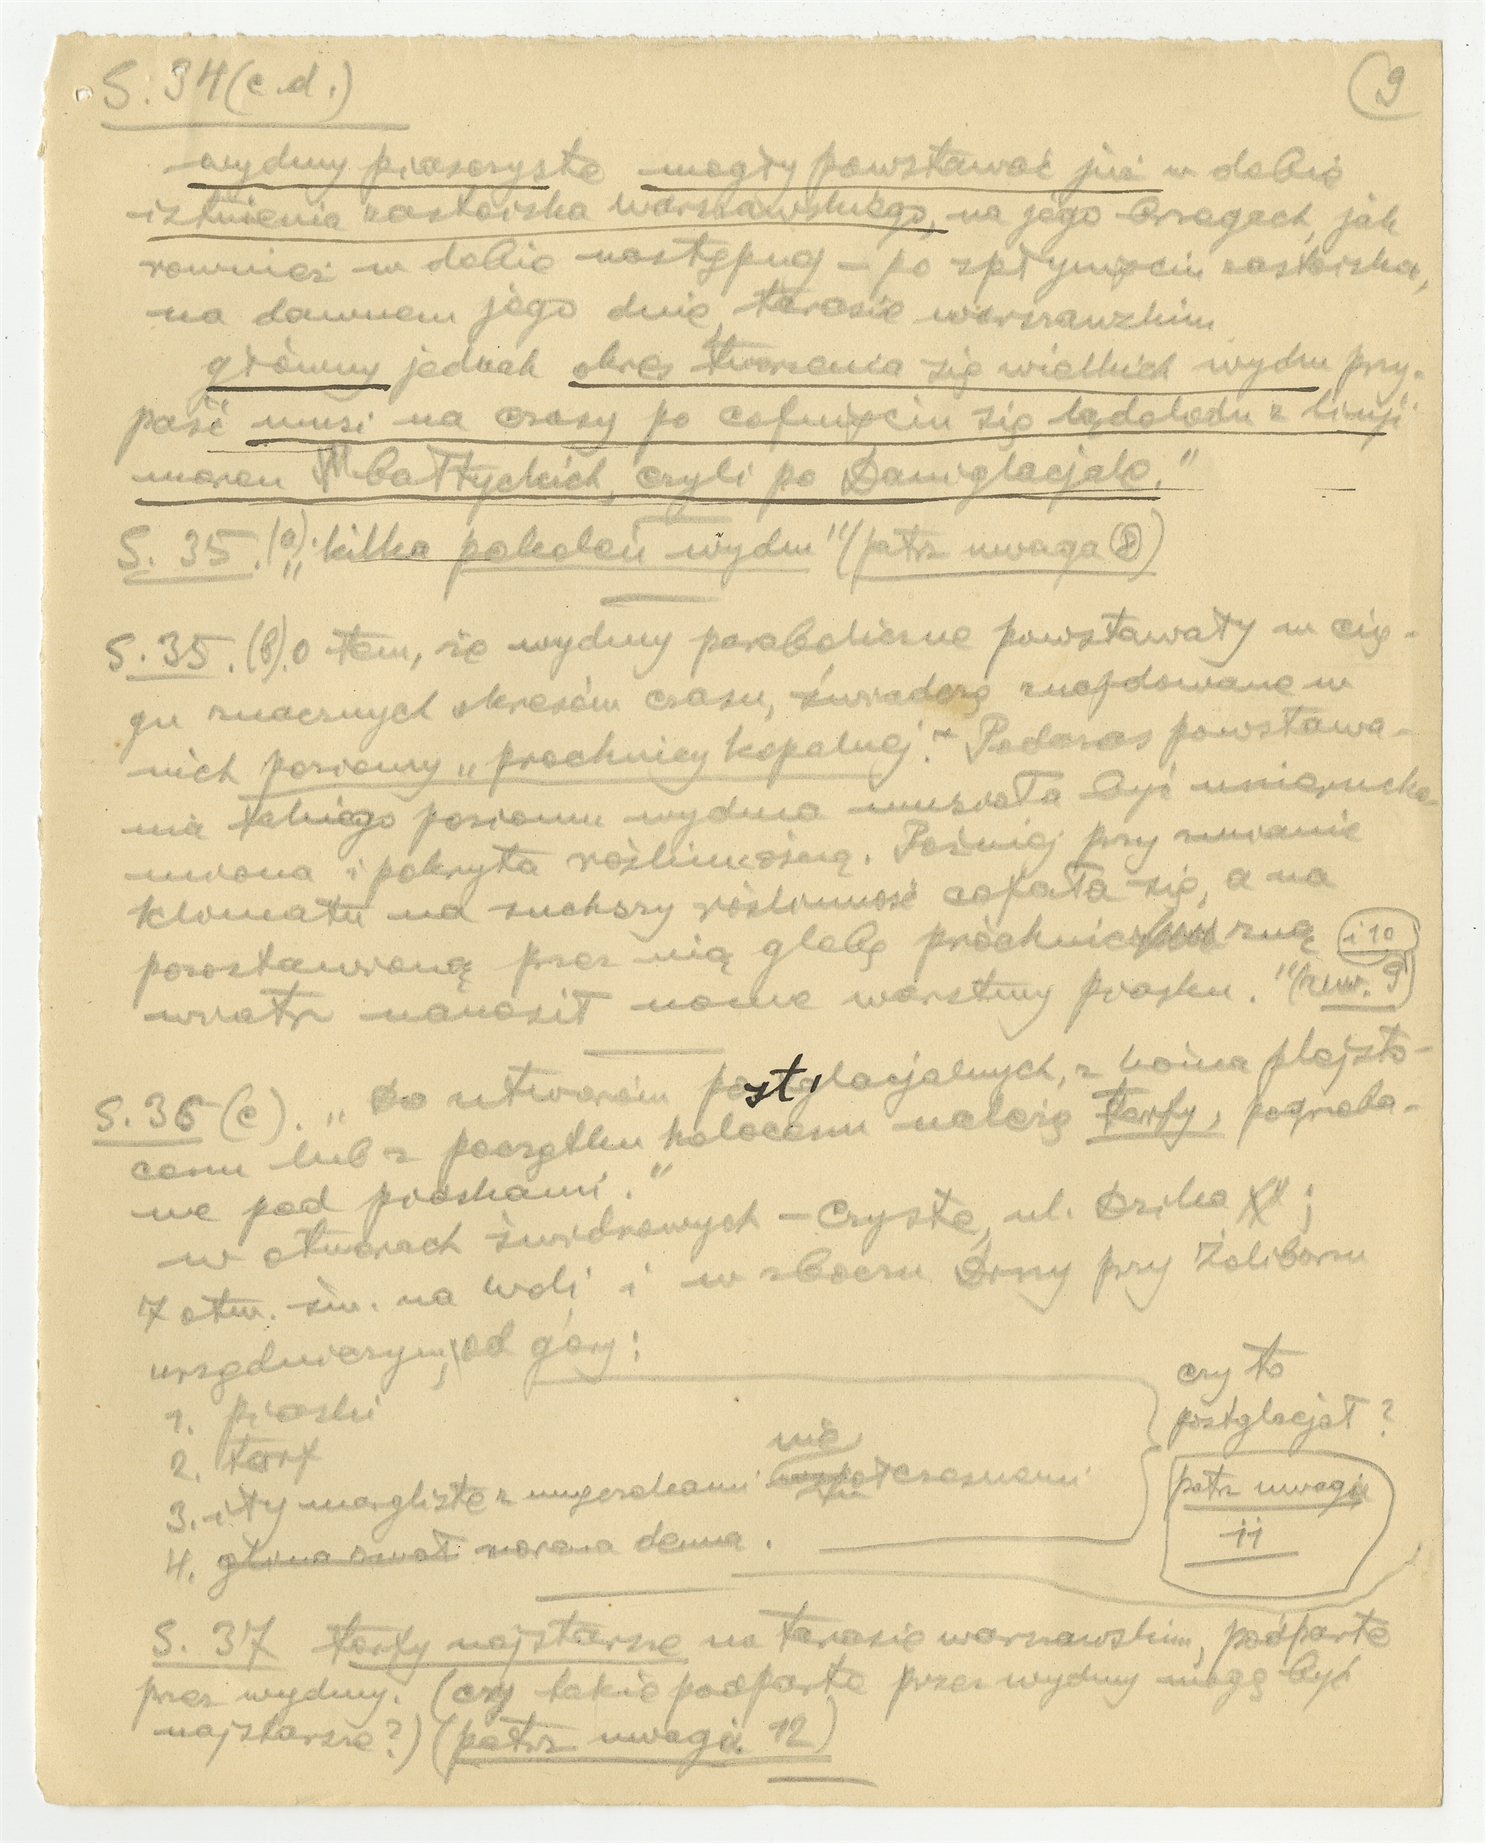 S. 34 (c.d.)
9
wydmy piaszczyste mogły powstawać już w dobie
istnienia zastoiska warszawskiego, na jego brzegach, jak
rownież w dobie następnej – po spłynięciu zastoiska,
na dawnem jego dnie, tarasie warszawskim
główny jednak okres tworzenia się wielkich wydm przy-
paść musi na czasy po cofnięciu się lądolodu z linji
moren bałtyckich, czyli po Daniglacjale."
S. 35. (a). „kilka pokoleń wydm" (patrz uwaga 8)
S. 35. (b). O tem, że wydmy paraboliczne powstawały w cią-
gu znacznych okresów czasu, świadczą znajdowane w
nich poziomy „prochnicy kopalnej". Podczas powstawa-
nia takiego poziomu wydma musiała być unierucho-
miona i pokryta roślinnością. Poźniej przy zmianie
klimatu na suchszy roślinność cofała się, a na
pozostawioną przez nią glebę próchniczną
i 10
wiatr nanosił nowe warstwy piasku." (uw. 9)
S. 36 (c). „Do utworów postglacjalnych, z końca plejsto-
cenu lub z początku holocenu należą torfy, pogrzeba-
ne pod piaskami."
w otworach świdrowych – Czyste, ul. Dzika ;
7 otw. św. na Woli i w zboczu Drny przy Żoliborzu
urzędniczym, od góry:
1. piaski
2. torf
3. iły margliste z muszelkami nie współczesnemi
4. glina zwał morena denna.
czy to
postglacjał?
patrz uwagę
11
S. 37 torfy najstarsze na tarasie warszawskim, podparte
przez wydmy. (czy takie podparte przez wydmy mogą być
najstarsze?) (patrz uwaga 12)